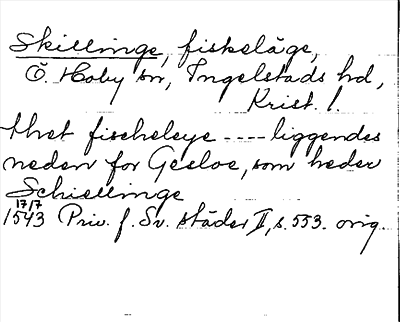 Skillinge, fiskeläge,
Ö. Hoby sn, Ingelstads hd,
Krist. l.
thet fischeleye ---- liggendes
neden for Gesloe, som heder
Schiellinge
17/7
1543 Priv. f. Sv. städer II, s. 553. orig.